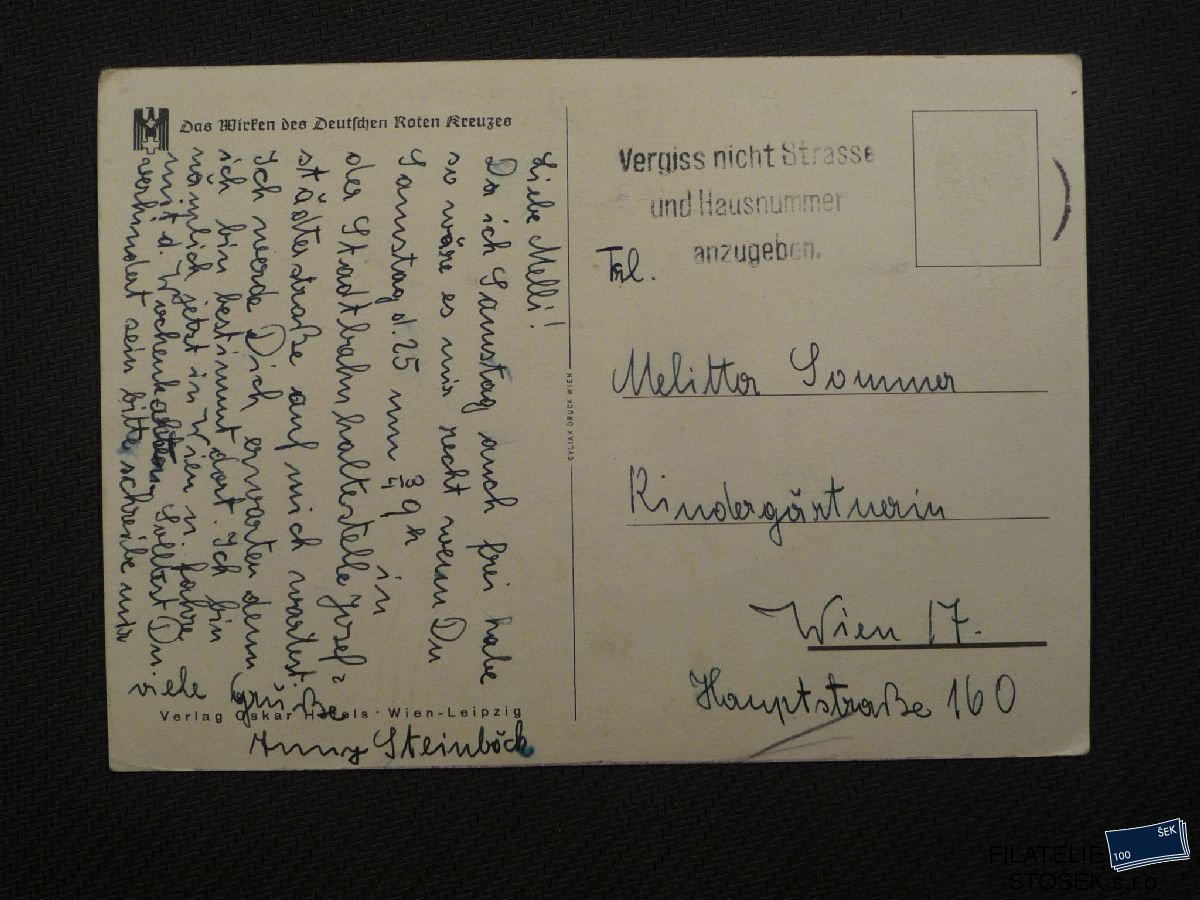 Das Wirken des Deutschen Roten Kreuzes
Liebe Melli!
Da ich Samstag auch frei habe
so wäre es mir recht wenn Du
Samstag d. 25 um 3/4 9 h in
der Stadtbahnhaltestelle Josef-
städterstraße auf mich wartest
Ich werde Dich erwarten denn
ich bin bestimmt dort. Ich bin
nämlich jetzt in Wien u. fahre
mit d. Wochenkarten Solltest Du
verhindert sein bitte schreibe mir
viele Grüße
Anny Steinböck
Verlag Oskar Wien-Leipzig
CYLIAX DRUCK WIEN
Vergiss nicht Strasse
und Hausnummer
anzugeben.
Frl.
Melitta Sommer
Kindergärtnerin
Wien 17.
Hauptstraße 160
FILATELIE
STOŠEK s.r.o.
100 ŠEK